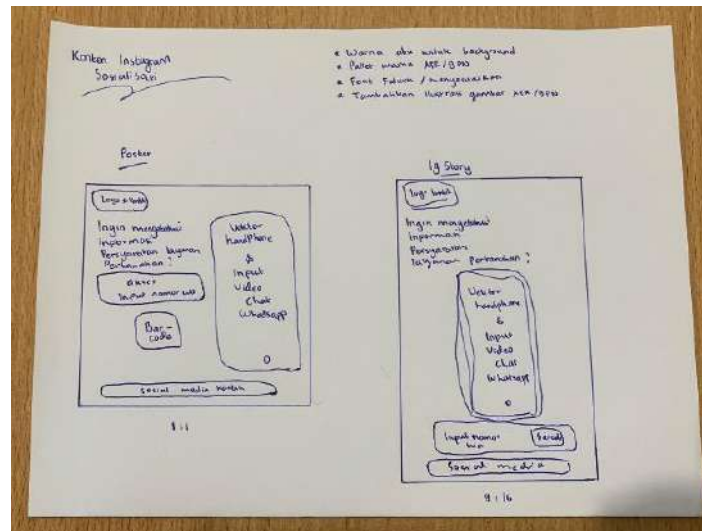 Konten Instagram
Sosialisasi
* Warna abu untuk background
* Pallet warna ATR/BPN
* Font Futura / menyesuaikan
* Tambahkan ilustrasi gambar ATR/BPN
Poster
Ingin mengetahui
Informasi
Persyaratan layanan
Pertanahan?
input nomor wa
Bar-
code
Vektor
handPhone
&
Input
Video
Chat
Whatsapp
Social media
1:1
Ig Story
Ingin mengetahui
Informasi
Persyaratan
layanan Pertanahan?
Vektor
handphone
&
Input
Video
Chat
Whatsapp
Input nomor
wa
Social media
9:16